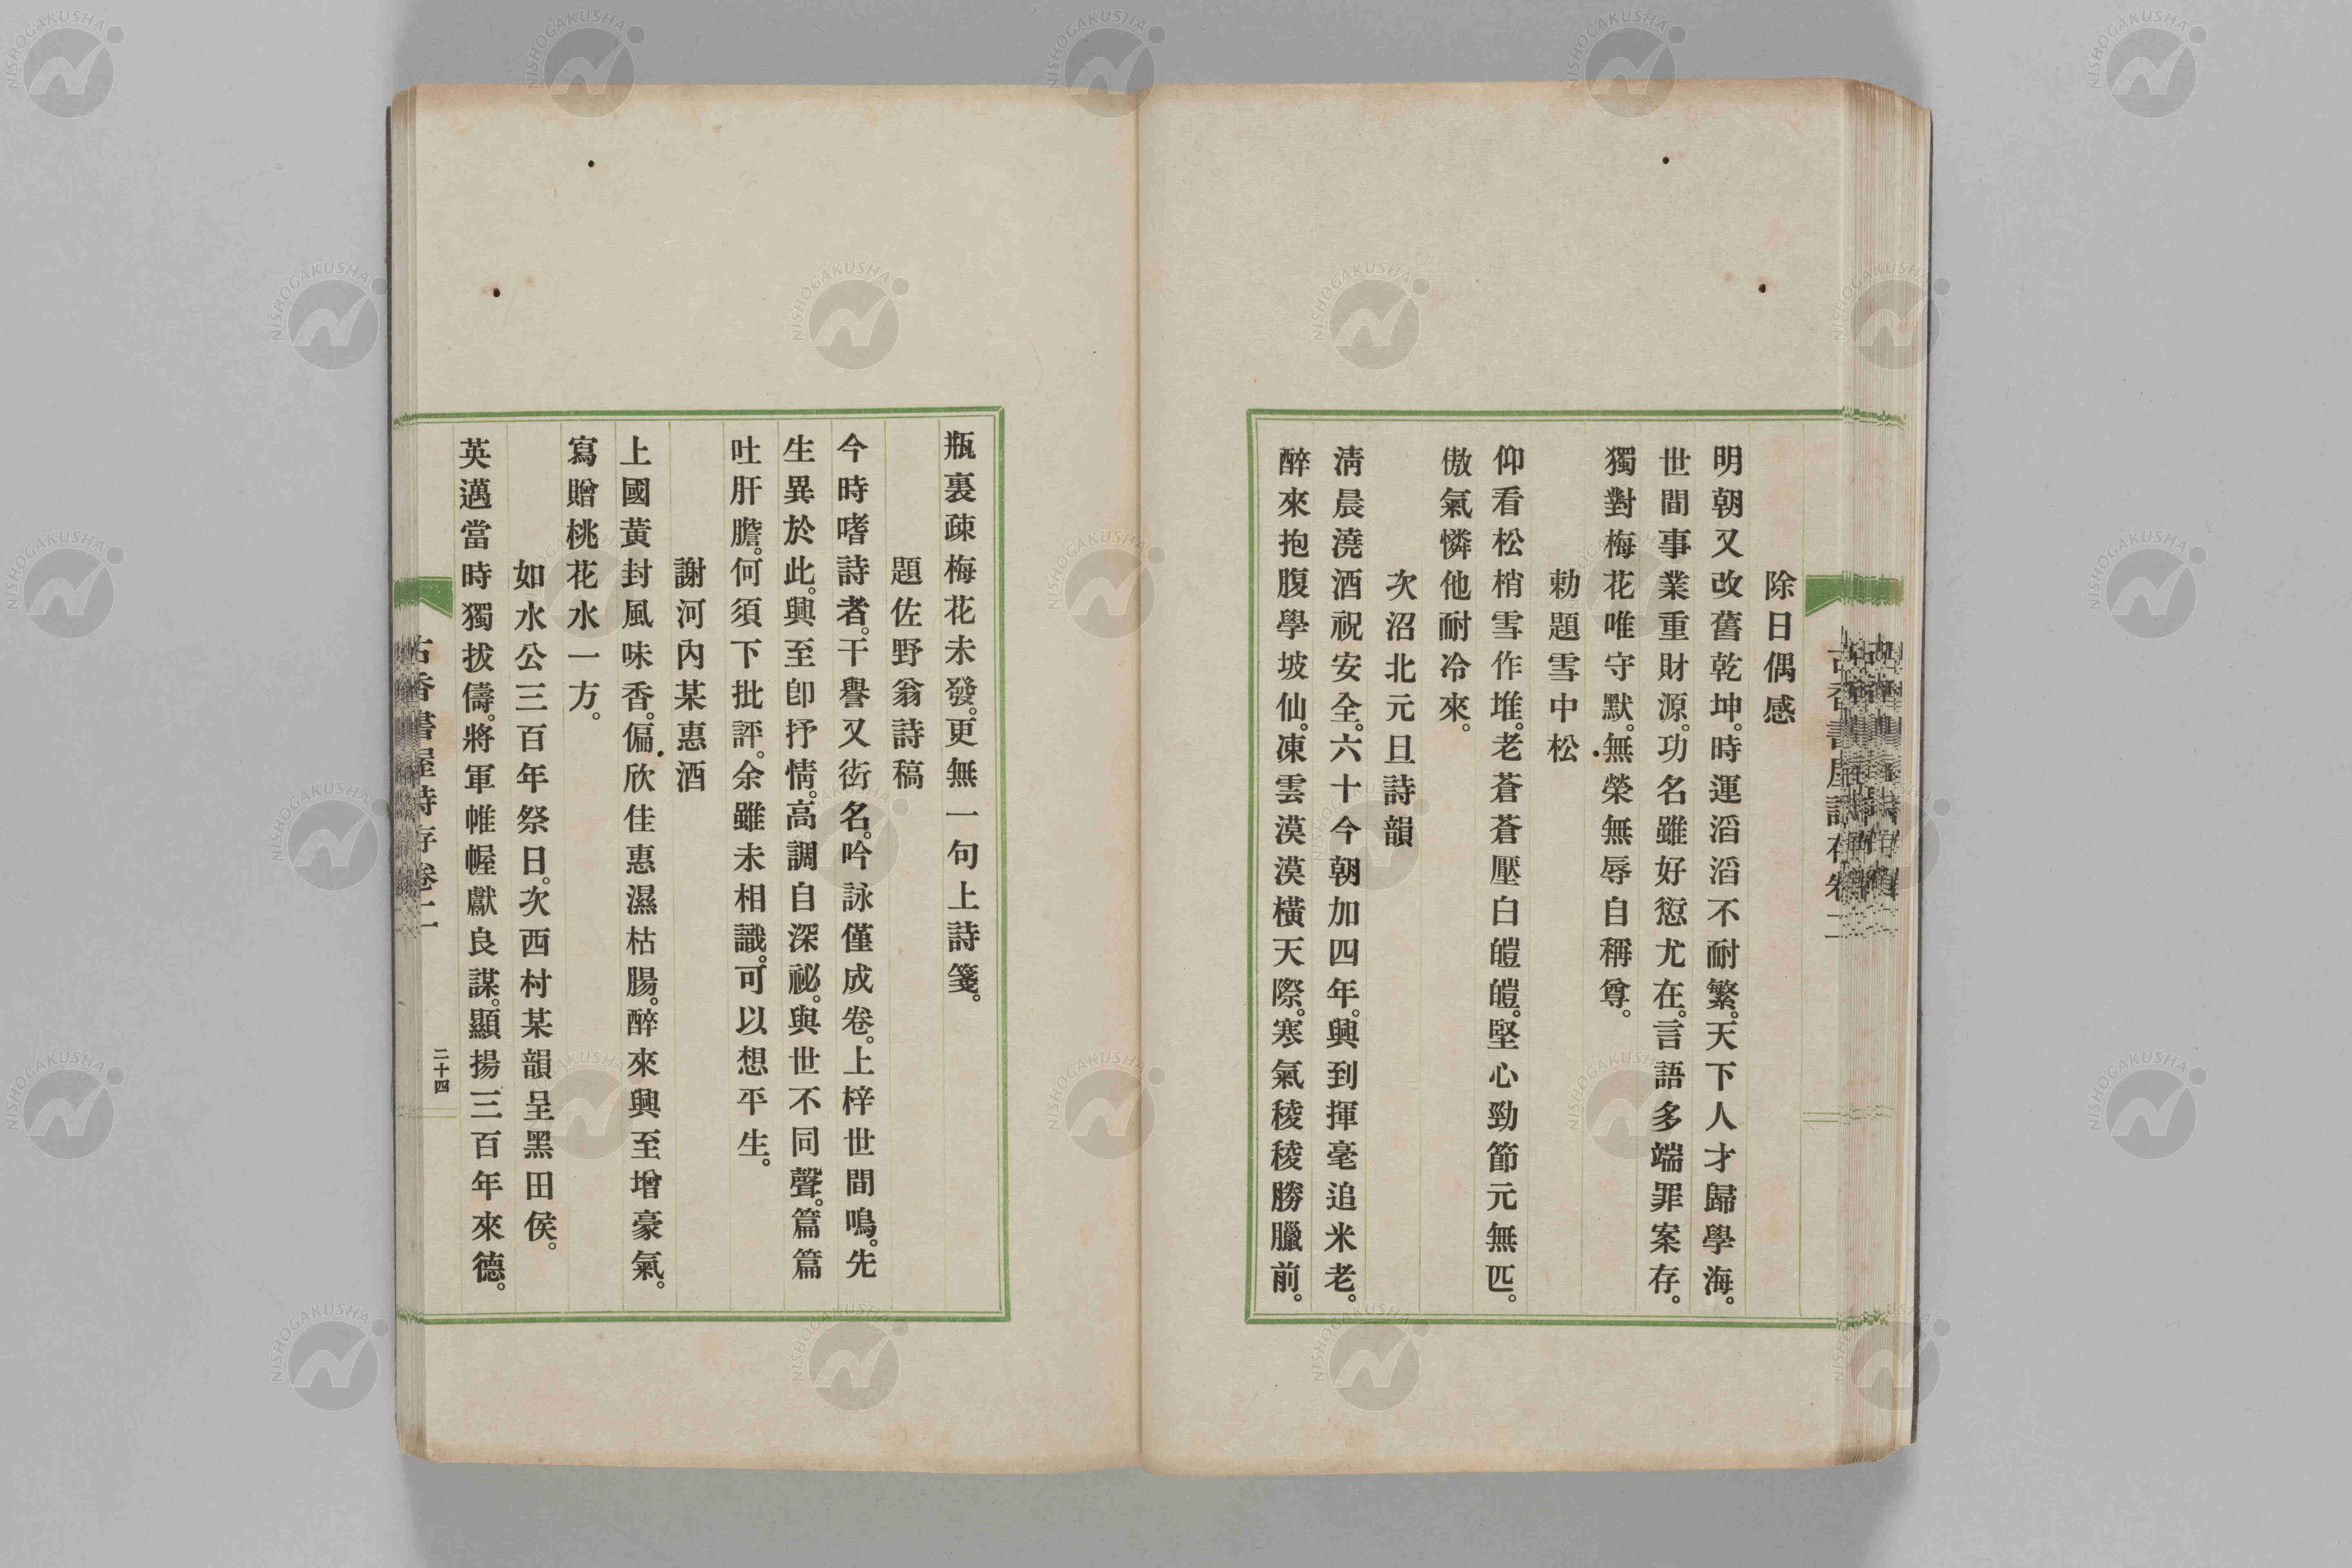 除日偶感
明朝又改舊乾坤。時運滔滔不耐繁。天下人才歸學海。
世間事業重財源。功名雖好愆尤在。言語多端罪案存。
獨對梅花唯守默。無榮無辱自稱尊。
勅題雪中松
仰看松梢雪作堆。老蒼蒼壓白皚皚。堅心勁節元無匹。
傲氣憐他耐冷來。
次沼北元旦詩韻
淸晨澆酒祝安全。六十今朝加四年。興到揮毫追米老。
醉來抱腹學坡仙。凍雲漠漠橫天際。寒氣稜稜勝臘前。
瓶裏疎梅花未發。更無一句上詩箋。
題佐野翁詩稿
今時嗜詩者。干譽又衒名。吟詠僅成卷。上梓世間鳴。先
生異於此。興至卽抒情。高調自深祕。與世不同聲。篇篇
吐肝膽。何須下批評。余雖未相識。可以想平生。
謝河內某惠酒
上國黃封風味香。偏欣佳惠濕枯腸。醉來興至增豪氣。
寫贈桃花水一方。
如水公三百年祭日。次西村某韻呈黑田侯。
英邁當時獨拔儔。將軍帷幄獻良謀。顯揚三百年來德。
古香書屋詩存卷二
二十四
NISHOGAKUSHA